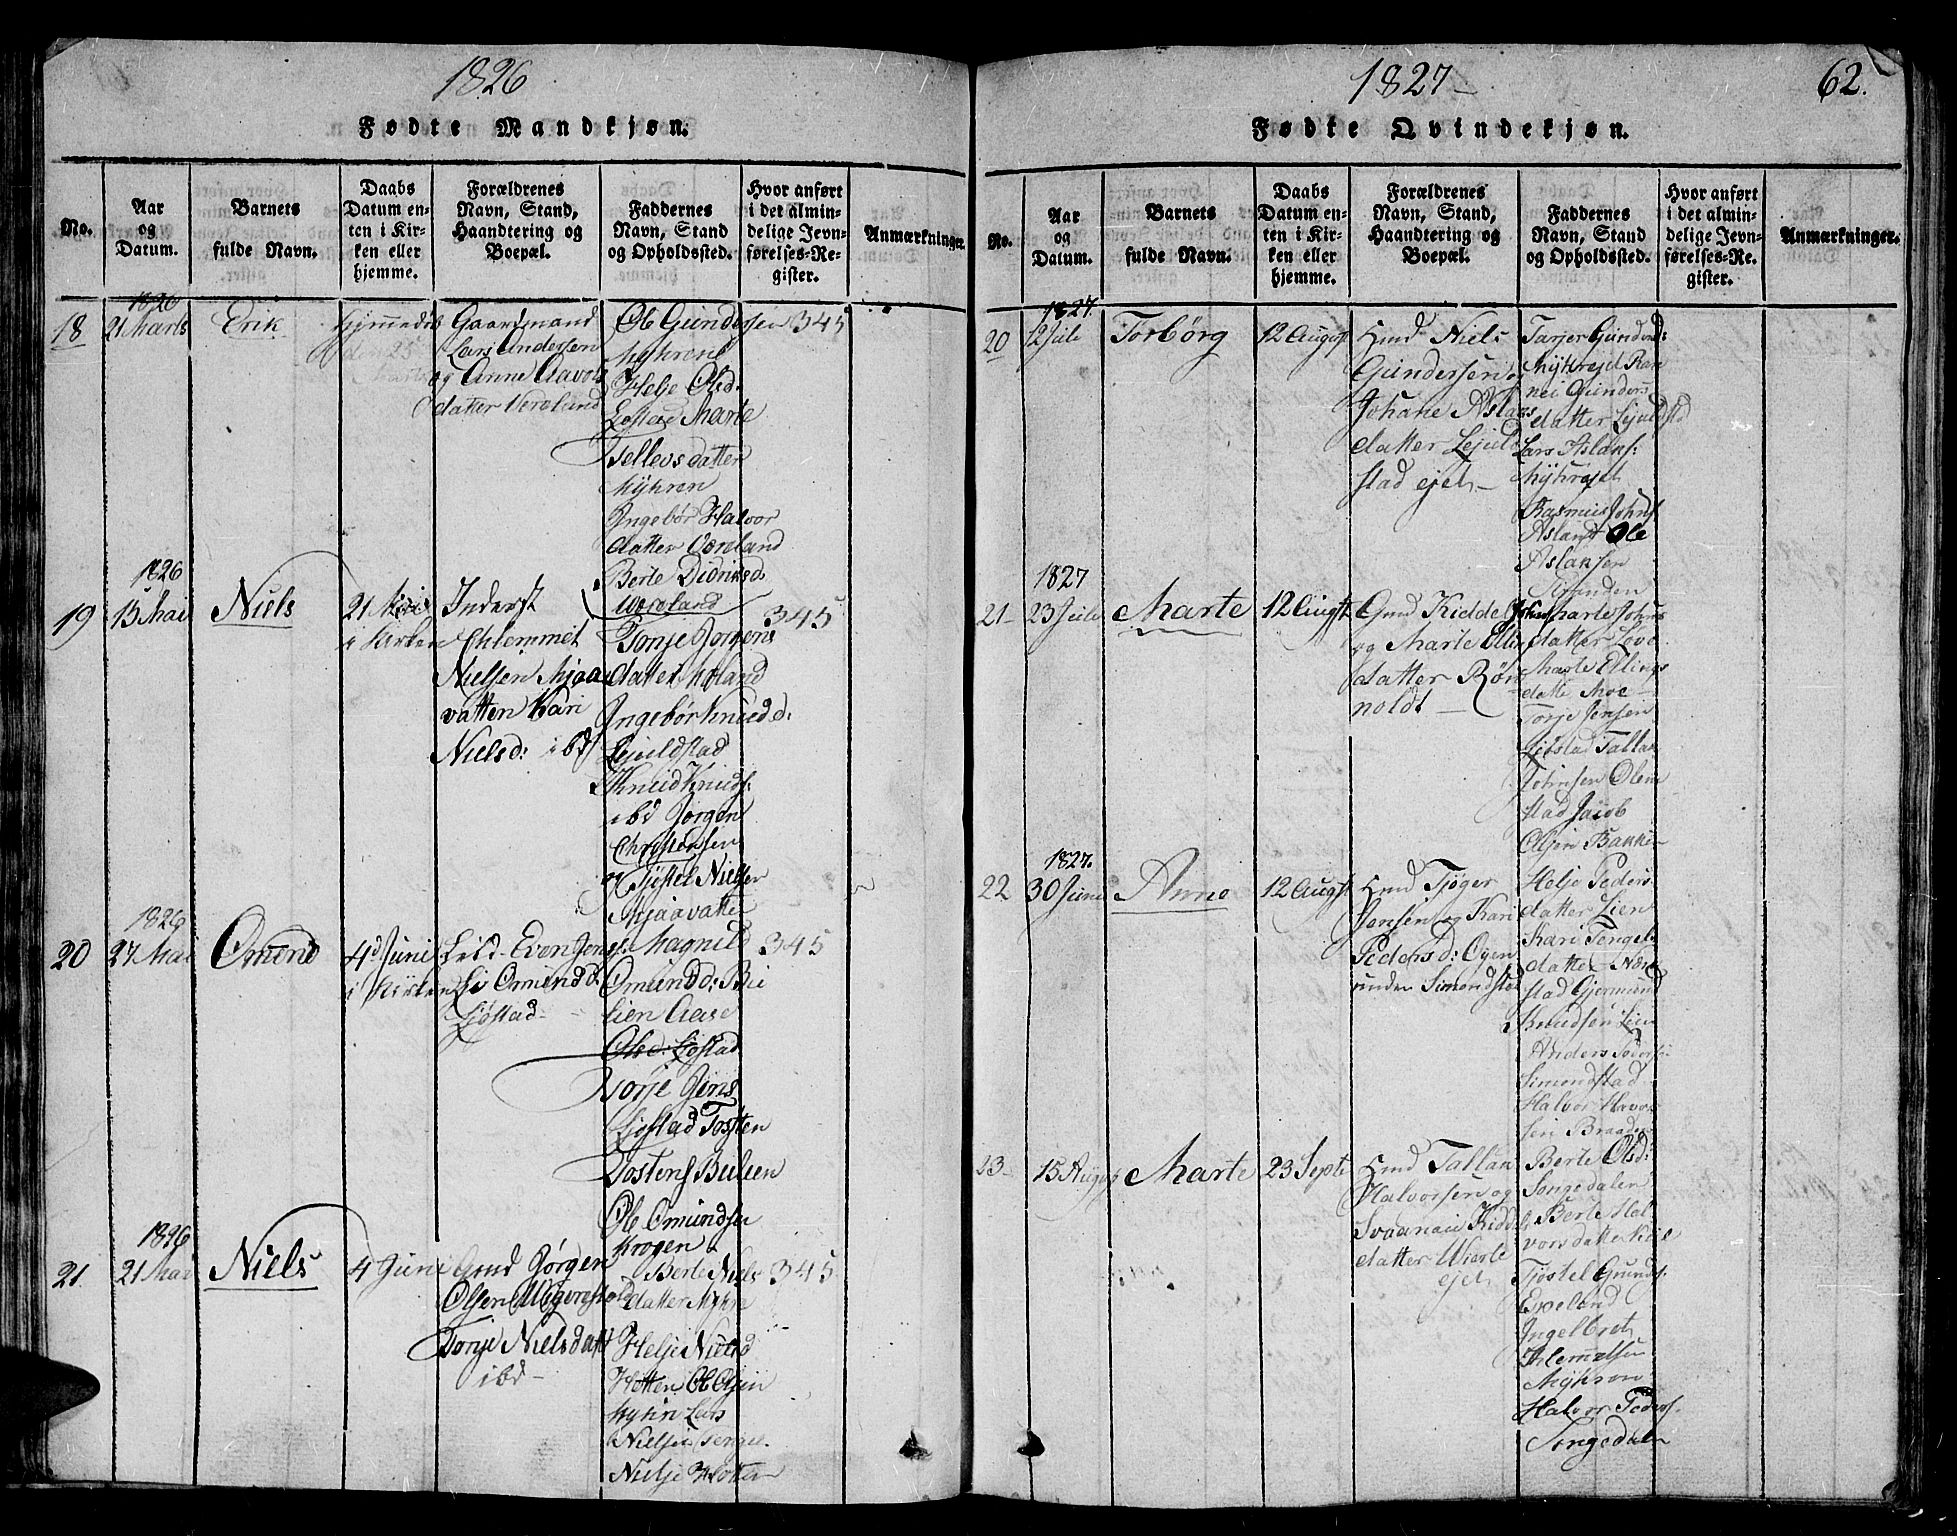 1826
Fødte Mandkjøn.
No.
Aar
og
Datum.
Barnets
fulde Navn.
Daabs
Datum en-
ten i Kir-
ken eller
hjemme.
Forældrenes
Navn, Stand,
Haandtering og
Boepæl.
Faddernes
Navn, Stand
og Opholdssted.
Hvor anført
i det almin-
delige Jevn-
førelses-Re-
gister.
Anmærkninger.
18
1826
21 Marts
Erik
Hjemmedøb
den 25
Gaardmand
Lars Andersen
og Anne Aavols
datter Væreland
Ole Gundersen
Myhren
Helje Olsd.
Løstad Marte
Tellevsdatter
Myhren
Ingebør Halvor
datter Væreland
Berte Didriksd.
Væreland
345
19
1826
15 Mai
Niels
21 Mai
i Kirken
Inderst
Chlemmet
Nielsen Mjaa
vatten Kari
Nielsd: ibd
Tonje Jørgens
datter Møland
Ingebør Knudd:
Lejuldstad
Knud Knuds:
ibd Jørgen
Christensen
Tjøstel Nielsen
Mjaavatten
345
20
1826
27 Mai
Omund
4d Juni
i Kirken
Leild. Even Jens:
Li Omundd.
Ljøstad
Magnild
Omundd: Bu
lien Aase
Olsd: Ljøstad
Torje Jens
Ljøstad Tosten
Tostens Buleen
Ole Omundsen
Krogen
345
21.
1826
21 Mai
Niels
4 Juni
Gmd Jørgen
Olsen Wigerestold
Tonje Nielsdatt
ibd
Berte Niels
datter Myhre
Helje Nielsd
Hotten Ole Olsen
Myhin Lars
Nielsen
Nielse Hotten
345
1827
62.
Fødte Qvindekjøn.
No.
Aar
og
Datum.
Barnets
fulde Navn.
Daabs
Datum en-
ten i Kir-
ken eller
hjemme.
Forældrenes
Navn, Stand,
Haandtering og
Boepæl.
Faddernes
Navn, Stand
og Opholdssted.
Hvor anført
i det almin-
delige Jevn-
førelses-Re-
gister.
Anmærkninger.
20
1827.
12 Juli
Torbørg
12 Augst
Hmd Niels
Gundersen og
Johane Aslaks
datter Lejuld
stad ejet
Tarjer Gundersd:
Myhrejet Ran
nei Gunders
datter Lejuldstad
Lars Aslaks:
Myhrejet
Rasmus Johns
Asland Ole
Aslaksen
Grunden
21
1827
23 Juli
Marte
12 Augst
Gmd Kidde Johns
og Marte Ellin
datter Røn
noldt
Marte Johns
datter Løve
Marte Ellings
datte Moe
Torje Jensen
Ljøstad Tallak
Johnsen Olem
stad Jacob
Olsen Bakken
22
1827.
30 Juni
Anne
12 Augst
Hmd Tjøger
Jensen og Kari
Pedersd: Ogen
under Simonstad
Helje Peders
datter Lien
Kari Tengels
datter Næve
stad Gjermund
Knudsen Lien
Anders Peders:
Simonstad
Halvor Havor
sen Braaden
23
15 Augus
Marte
23 Septe
Hmd Tallak
Halvorsen og
Svaanau Kidd
datter Wierle
ejet
Berte Olsd:
Songedalen
Berte Hal
vorsdatter Kile
Tjøstel Grunds:
Expeland
Ingelbret
Khlemetsen
Myhren
Halvor Peders
Songedalen